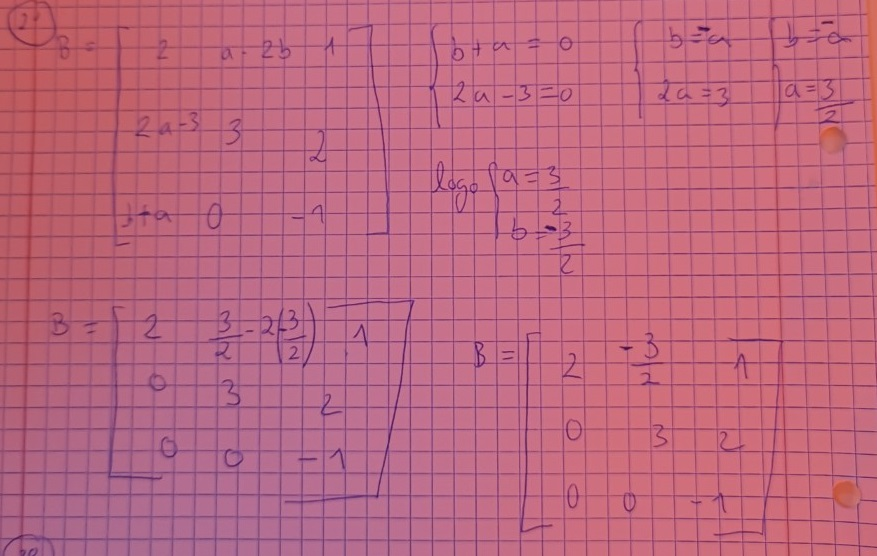 2º
B = [ 2 a-2b 1
2a-3 3 2
b+a 0 -1 ]
{ b+a = 0
2a-3=0
{ b=-a
2a=3
{ b=-a
a=3/2
logo { a=3/2
b=-3/2
B = [ 2 3/2-2(-3/2) 1
0 3 2
0 0 -1 ]
B = [ 2 -3/2 1
0 3 2
0 0 -1 ]